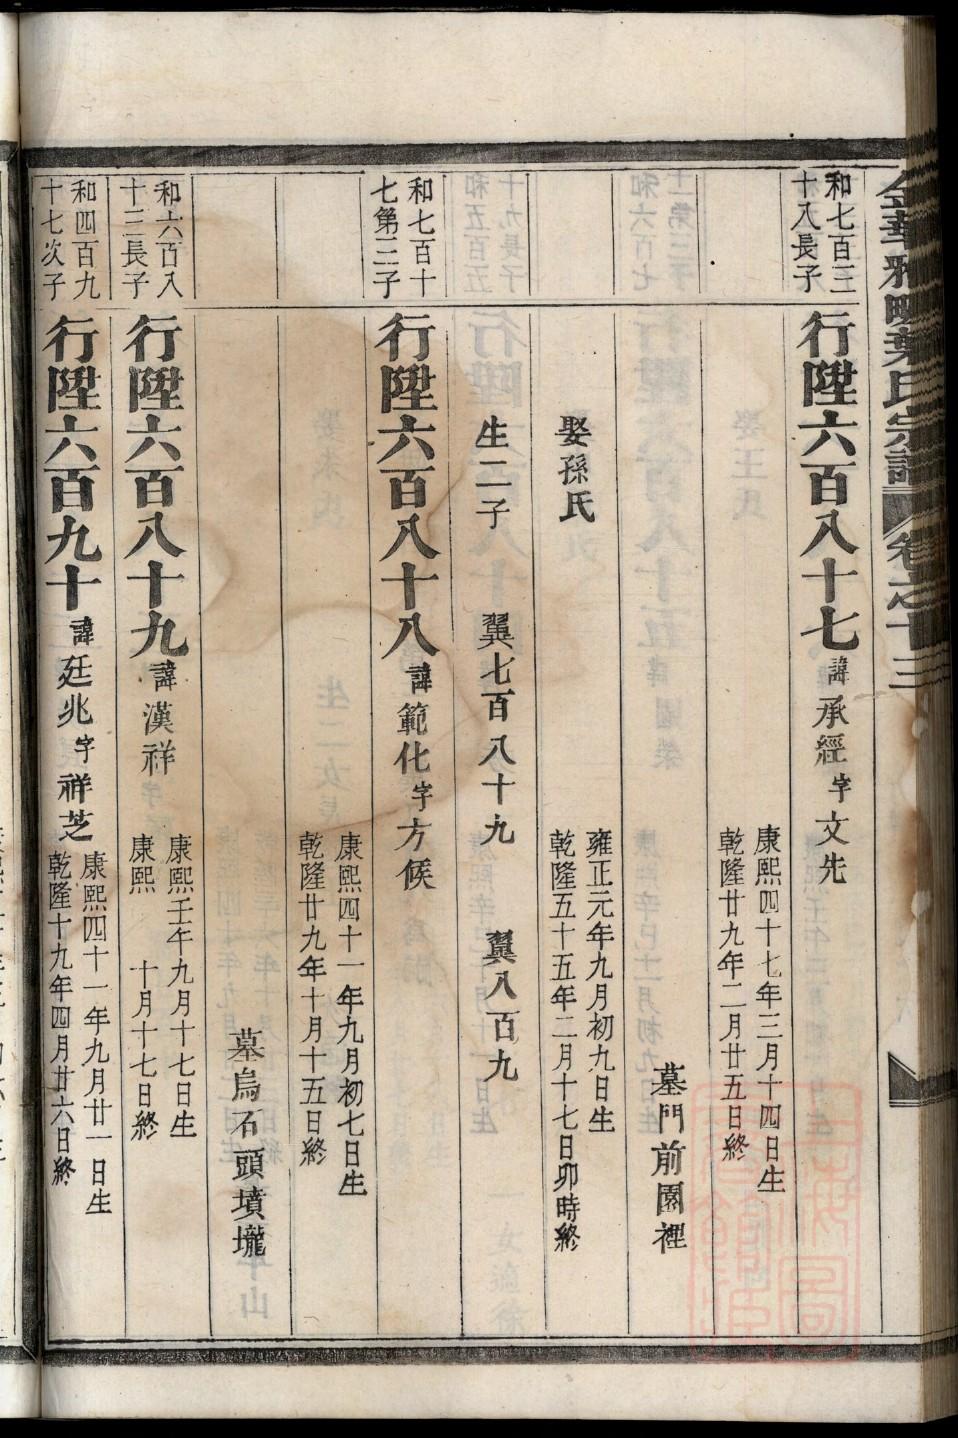 金華雅畈葉氏宗譜 卷之十三
和七百三
十八長子
行陞六百八十七 諱承經字文先
康熙四十七年三月十四日生
乾隆廿九年二月廿五日終
墓門前園裡
娶孫氏
雍正元年九月初九日生
乾隆五十五年二月十七日卯時終
生二子 翼七百八十九 翼八百九
和七百十
七第三子
行陞六百八十八 諱範化字方候
康熙四十一年九月初七日生
乾隆廿九年十月十五日終
墓烏石頭墳壠
和六百八
十三長子
行陞六百八十九 諱漢祥
康熙壬午九月十七日生
康熙 十月十七日終
和四百九
十七次子
行陞六百九十 諱廷兆字祥芝
康熙四十一年九月廿一日生
乾隆十九年四月廿六日終